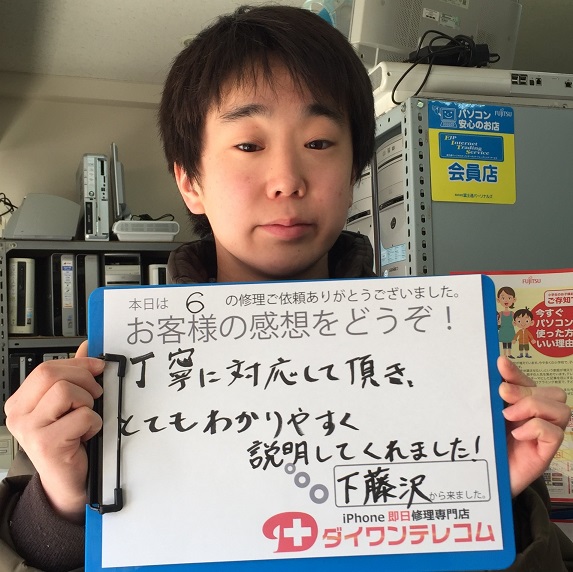 パソコン
安心のお店
FUJITSU
EJP
Internet
Trading
Service
会員店
FUJITSU
ご存知
今すぐ
パソコン
使った方
いい理由
本日は 6 の修理ご依頼ありがとうございました。
お客様の感想をどうぞ！
丁寧に対応して頂き、
とてもわかりやすく
説明してくれました！
下藤沢から来ました。
iPhone 即日修理専門店
ダイワンテレコム